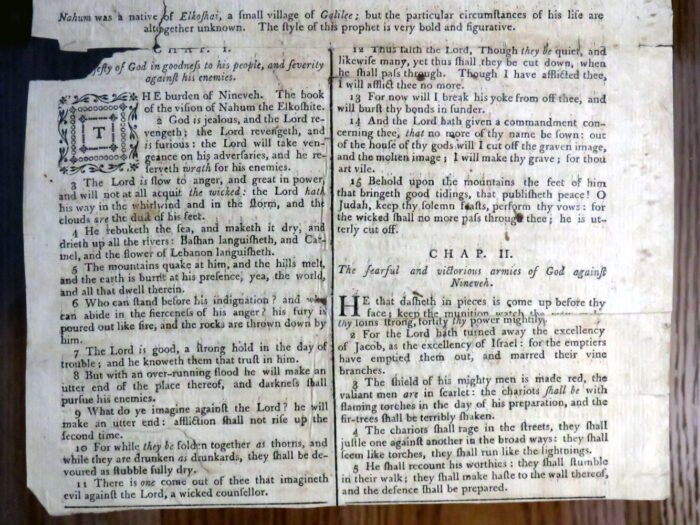 Nahum was a native of Elkoſhai, a ſmall village of Galilee; but the particular circumſtances of his life are
altogether unknown. The ſtyle of this prophet is very bold and figurative.
CHAP. I.
of God in goodneſs to his people, and ſeverity
againſt his enemies.
THE burden of Nineveh. The book
of the viſion of Nahum the Elkoſhite.
2 God is jealous, and the Lord re-
vengeth; the Lord revengeth, and
is furious: the Lord will take ven-
geance on his adverſaries, and he re-
ſerveth wrath for his enemies.
3 The Lord is ſlow to anger, and great in power,
and will not at all acquit the wicked: the Lord hath
his way in the whirlwind and in the ſtorm, and the
clouds are the duſt of his feet.
4 He rebuketh the ſea, and maketh it dry, and
drieth up all the rivers: Baſhan languiſheth, and Car-
mel, and the flower of Lebanon languiſheth.
5 The mountains quake at him, and the hills melt,
and the earth is burnt at his preſence, yea, the world,
and all that dwell therein.
6 Who can ſtand before his indignation? and who
can abide in the fierceneſs of his anger? his fury is
poured out like fire, and the rocks are thrown down by
him.
7 The Lord is good, a ſtrong hold in the day of
trouble; and he knoweth them that truſt in him.
8 But with an over-running flood he will make an
utter end of the place thereof, and darkneſs ſhall
purſue his enemies.
9 What do ye imagine againſt the Lord? he will
make an utter end: affliction ſhall not riſe up the
ſecond time.
10 For while they be folden together as thorns, and
while they are drunken as drunkards, they ſhall be de-
voured as ſtubble fully dry.
11 There is one come out of thee that imagineth
evil againſt the Lord, a wicked counſellor.
12 Thus ſaith the Lord, Though they be quiet, and
likewiſe many, yet thus ſhall they be cut down, when
he ſhall paſs through. Though I have afflicted thee,
I will afflict thee no more.
13 For now will I break his yoke from off thee, and
will burſt thy bonds in ſunder.
14 And the Lord hath given a commandment con-
cerning thee, that no more of thy name be ſown: out
of the houſe of thy gods will I cut off the graven image,
and the molten image; I will make thy grave; for thou
art vile.
15 Behold upon the mountains the feet of him
that bringeth good tidings, that publiſheth peace! O
Judah, keep thy ſolemn feaſts, perform thy vows: for
the wicked ſhall no more paſs through thee; he is ut-
terly cut off.
CHAP. II.
The fearful and victorious armies of God againſt
Nineveh.
HE that daſheth in pieces is come up before thy
face; keep the munition, watch the
thy loins ſtrong, fortify thy power mightily.
2 For the Lord hath turned away the excellency
of Jacob, as the excellency of Iſrael: for the emptiers
have emptied them out, and marred their vine
branches.
3 The ſhield of his mighty men is made red, the
valiant men are in ſcarlet: the chariots ſhall be with
flaming torches in the day of his preparation, and the
fir-trees ſhall be terribly ſhaken.
4 The chariots ſhall rage in the ſtreets, they ſhall
juſtle one againſt another in the broad ways: they ſhall
ſeem like torches, they ſhall run like the lightnings.
5 He ſhall recount his worthies: they ſhall ſtumble
in their walk; they ſhall make haſte to the wall thereof,
and the defence ſhall be prepared.